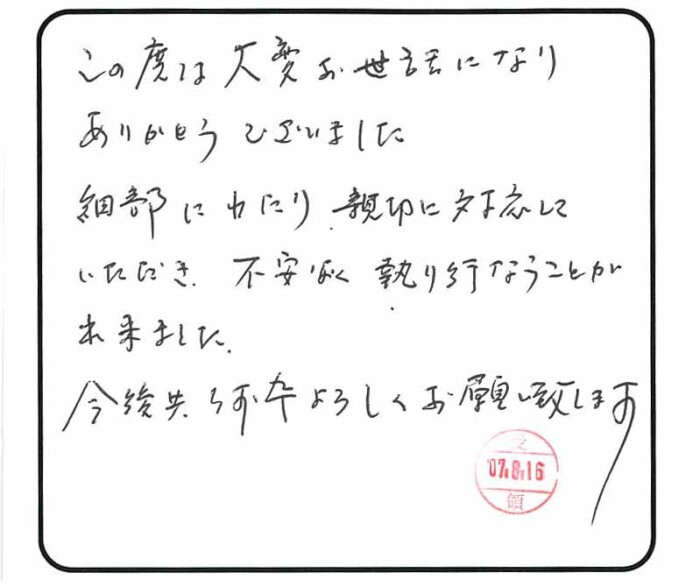 この度は大変お世話になり
ありがとうございました
細部にわたり親切に対応して
いただき、不安なく執り行なうことが
出来ました。
今後共何卒よろしくお願い致します
受
'07.8.16
領